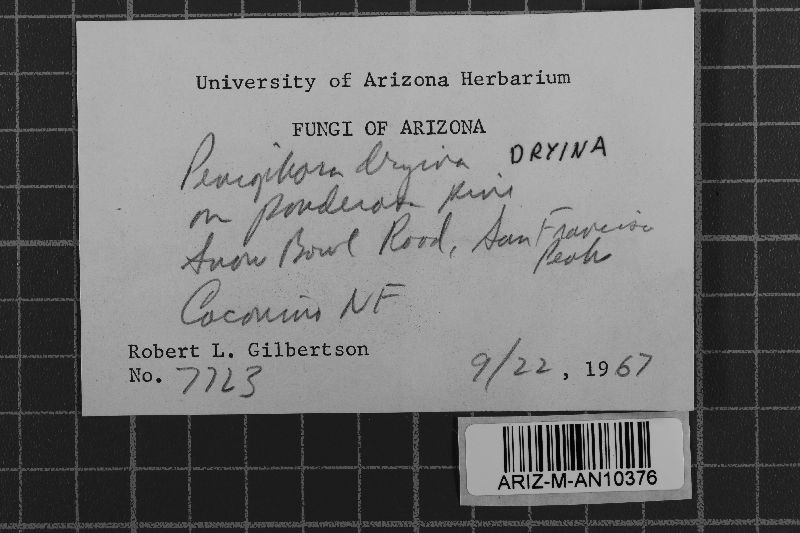 University of Arizona Herbarium
FUNGI OF ARIZONA
Peniophora dryina DRYINA
on ponderosa pine
Snow Bowl Road, San Francisco
Peaks
Coconino NF
Robert L. Gilbertson
No. 7723 9/22, 1967
ARIZ-M-AN10376